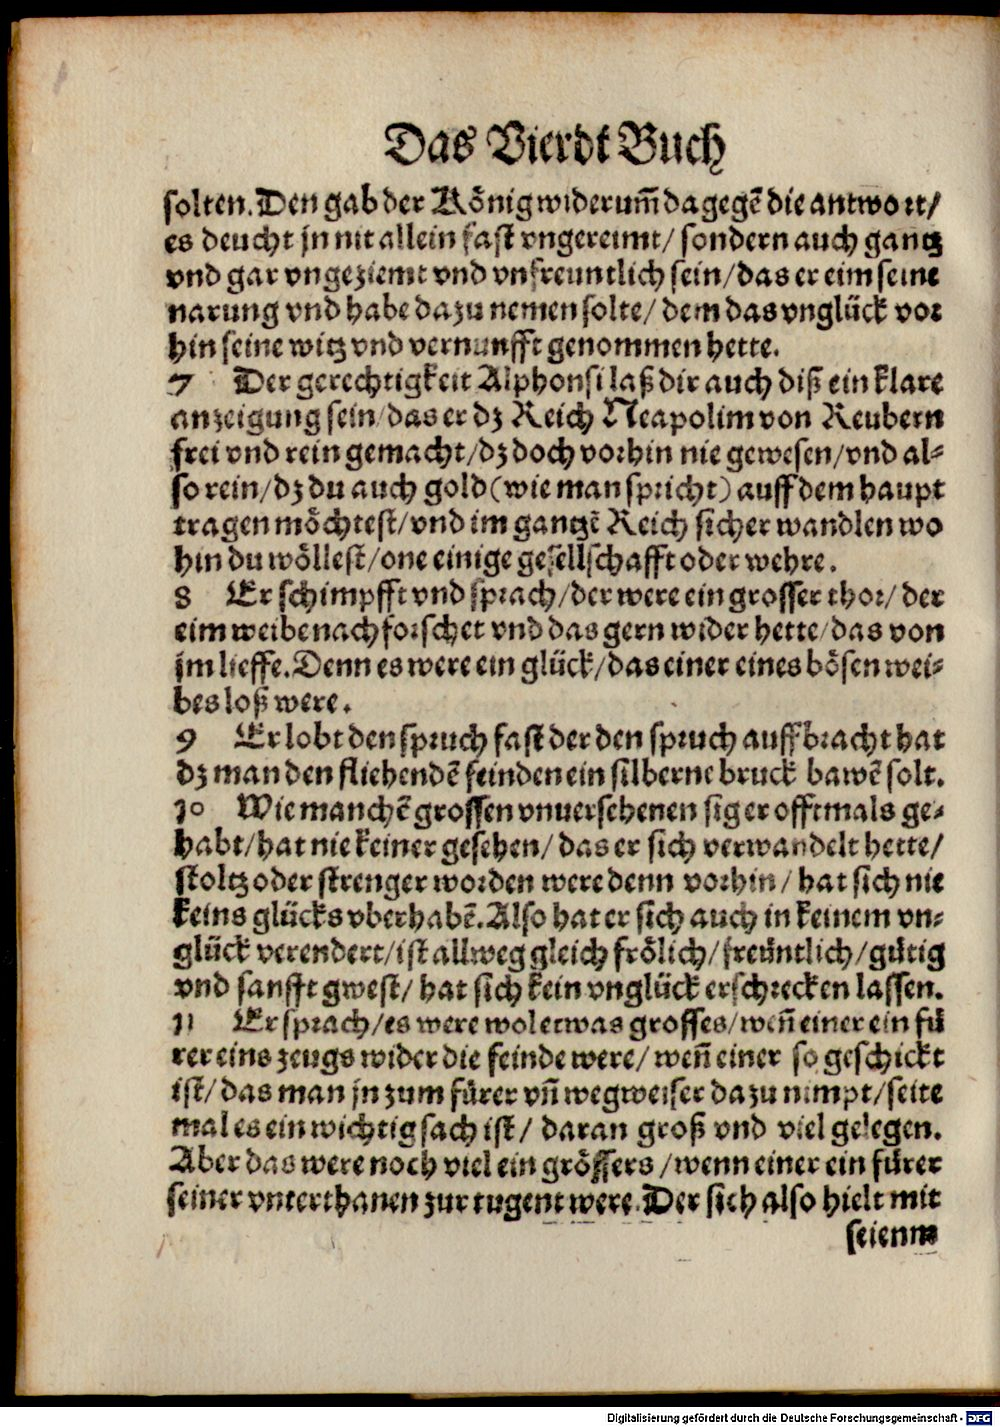 Das Vierdt Buch
solten. Den gab der König widerum̃ dagegẽ die antwort/
es deucht jn nit allein fast vngereimt/ sondern auch gantz
vnd gar vngeziemt vnd vnfreuntlich sein/ das er eim seine
narung vnd habe dazu nemen solte/ dem das vnglück vor
hin seine witz vnd vernunfft genommen hette.
7 Der gerechtigkeit Alphonsi laß dir auch diß ein klare
anzeigung sein/ das er dz Reich Neapolim von Reubern
frei vnd rein gemacht/ dz doch vorhin nie gewesen/ vnd al-
so rein/ dz du auch gold (wie man spricht) auff dem haupt
tragen möchtest/ vnd im gantzẽ Reich sicher wandlen wo
hin du wöllest/ one einige gesellschafft oder wehre.
8 Er schimpfft vnd sprach/ der were ein grosser thor/ der
eim weibe nachforschet vnd das gern wider hette/ das von
jm lieffe. Denn es were ein glück/ das einer eines bösen wei-
bes loß were.
9 Er lobt den spruch fast der den spruch auffbracht hat
dz man den fliehendẽ feinden ein silberne bruck bawẽ solt.
10 Wie manchẽ grossen vnuersehenen sig er offtmals ge-
habt/ hat nie keiner gesehen/ das er sich verwandelt hette/
stoltz oder strenger worden were denn vorhin/ hat sich nie
keins glücks vberhabẽ. Also hat er sich auch in keinem vn-
glück verendert/ ist allweg gleich frölich/ freüntlich/ gütig
vnd sanfft gwest/ hat sich kein vnglück erschrecken lassen.
11 Er sprach/ es were wol etwas grosses/ weñ einer ein fü
rer eins zeugs wider die feinde were/ weñ einer so geschickt
ist/ das man jn zum fürer vñ wegweiser dazu nimpt/ seite
mal es ein wichtig sach ist/ daran groß vnd viel gelegen.
Aber das were noch viel ein grössers/ wenn einer ein fürer
seiner vnterthanen zur tugent were. Der sich also hielt mit
seienm
Digitalisierung gefördert durch die Deutsche Forschungsgemeinschaft - DFG